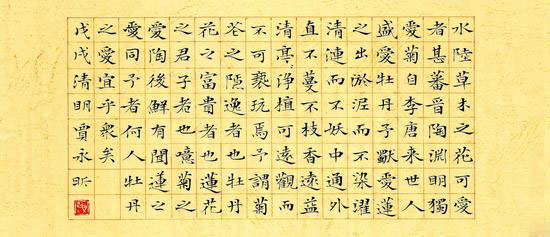 水陸草木之花可愛
者甚蕃晉陶淵明獨
愛菊自李唐來世人
盛愛牡丹予獨愛蓮
之出淤泥而不染濯
清漣而不妖中通外
直不蔓不枝香遠益
清亭淨植可遠觀而
不可褻玩焉予謂菊
花之隱逸者也牡丹
花之富貴者也蓮花
之君子者也噫菊之
愛陶後鮮有聞蓮之
愛同予者何人牡丹
之愛宜乎眾矣
戊戌清明賈永昕